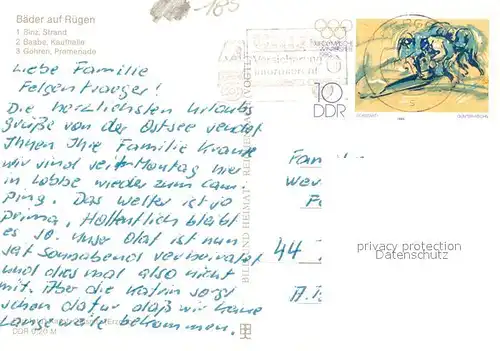 Bäder auf Rügen
1 Binz, Strand
2 Baabe, Kaufhalle
3 Göhren, Promenade
-185
Liebe Familie
Felgentrager!
Die herzlichsten Urlaubs
grüße von der Ostsee sendet
Ihnen Ihre Familie Krause
wir sind seit Montag hier
in Lobbe wieder zum Cam
ping. Das Wetter ist jo
prima, Hoffentlich bleibt
es so. Unser Olaf ist nun
seit Sonnabend verheiratet
und dies mal also nicht
mit. Aber die Katrin sorgt
schon dafür daß wir keine
Langeweile bekommen.
DDR 0,20 M
BILD UND HEIMAT
Versicherung
10
DDR
Fam
44
privacy protection
Datenschutz